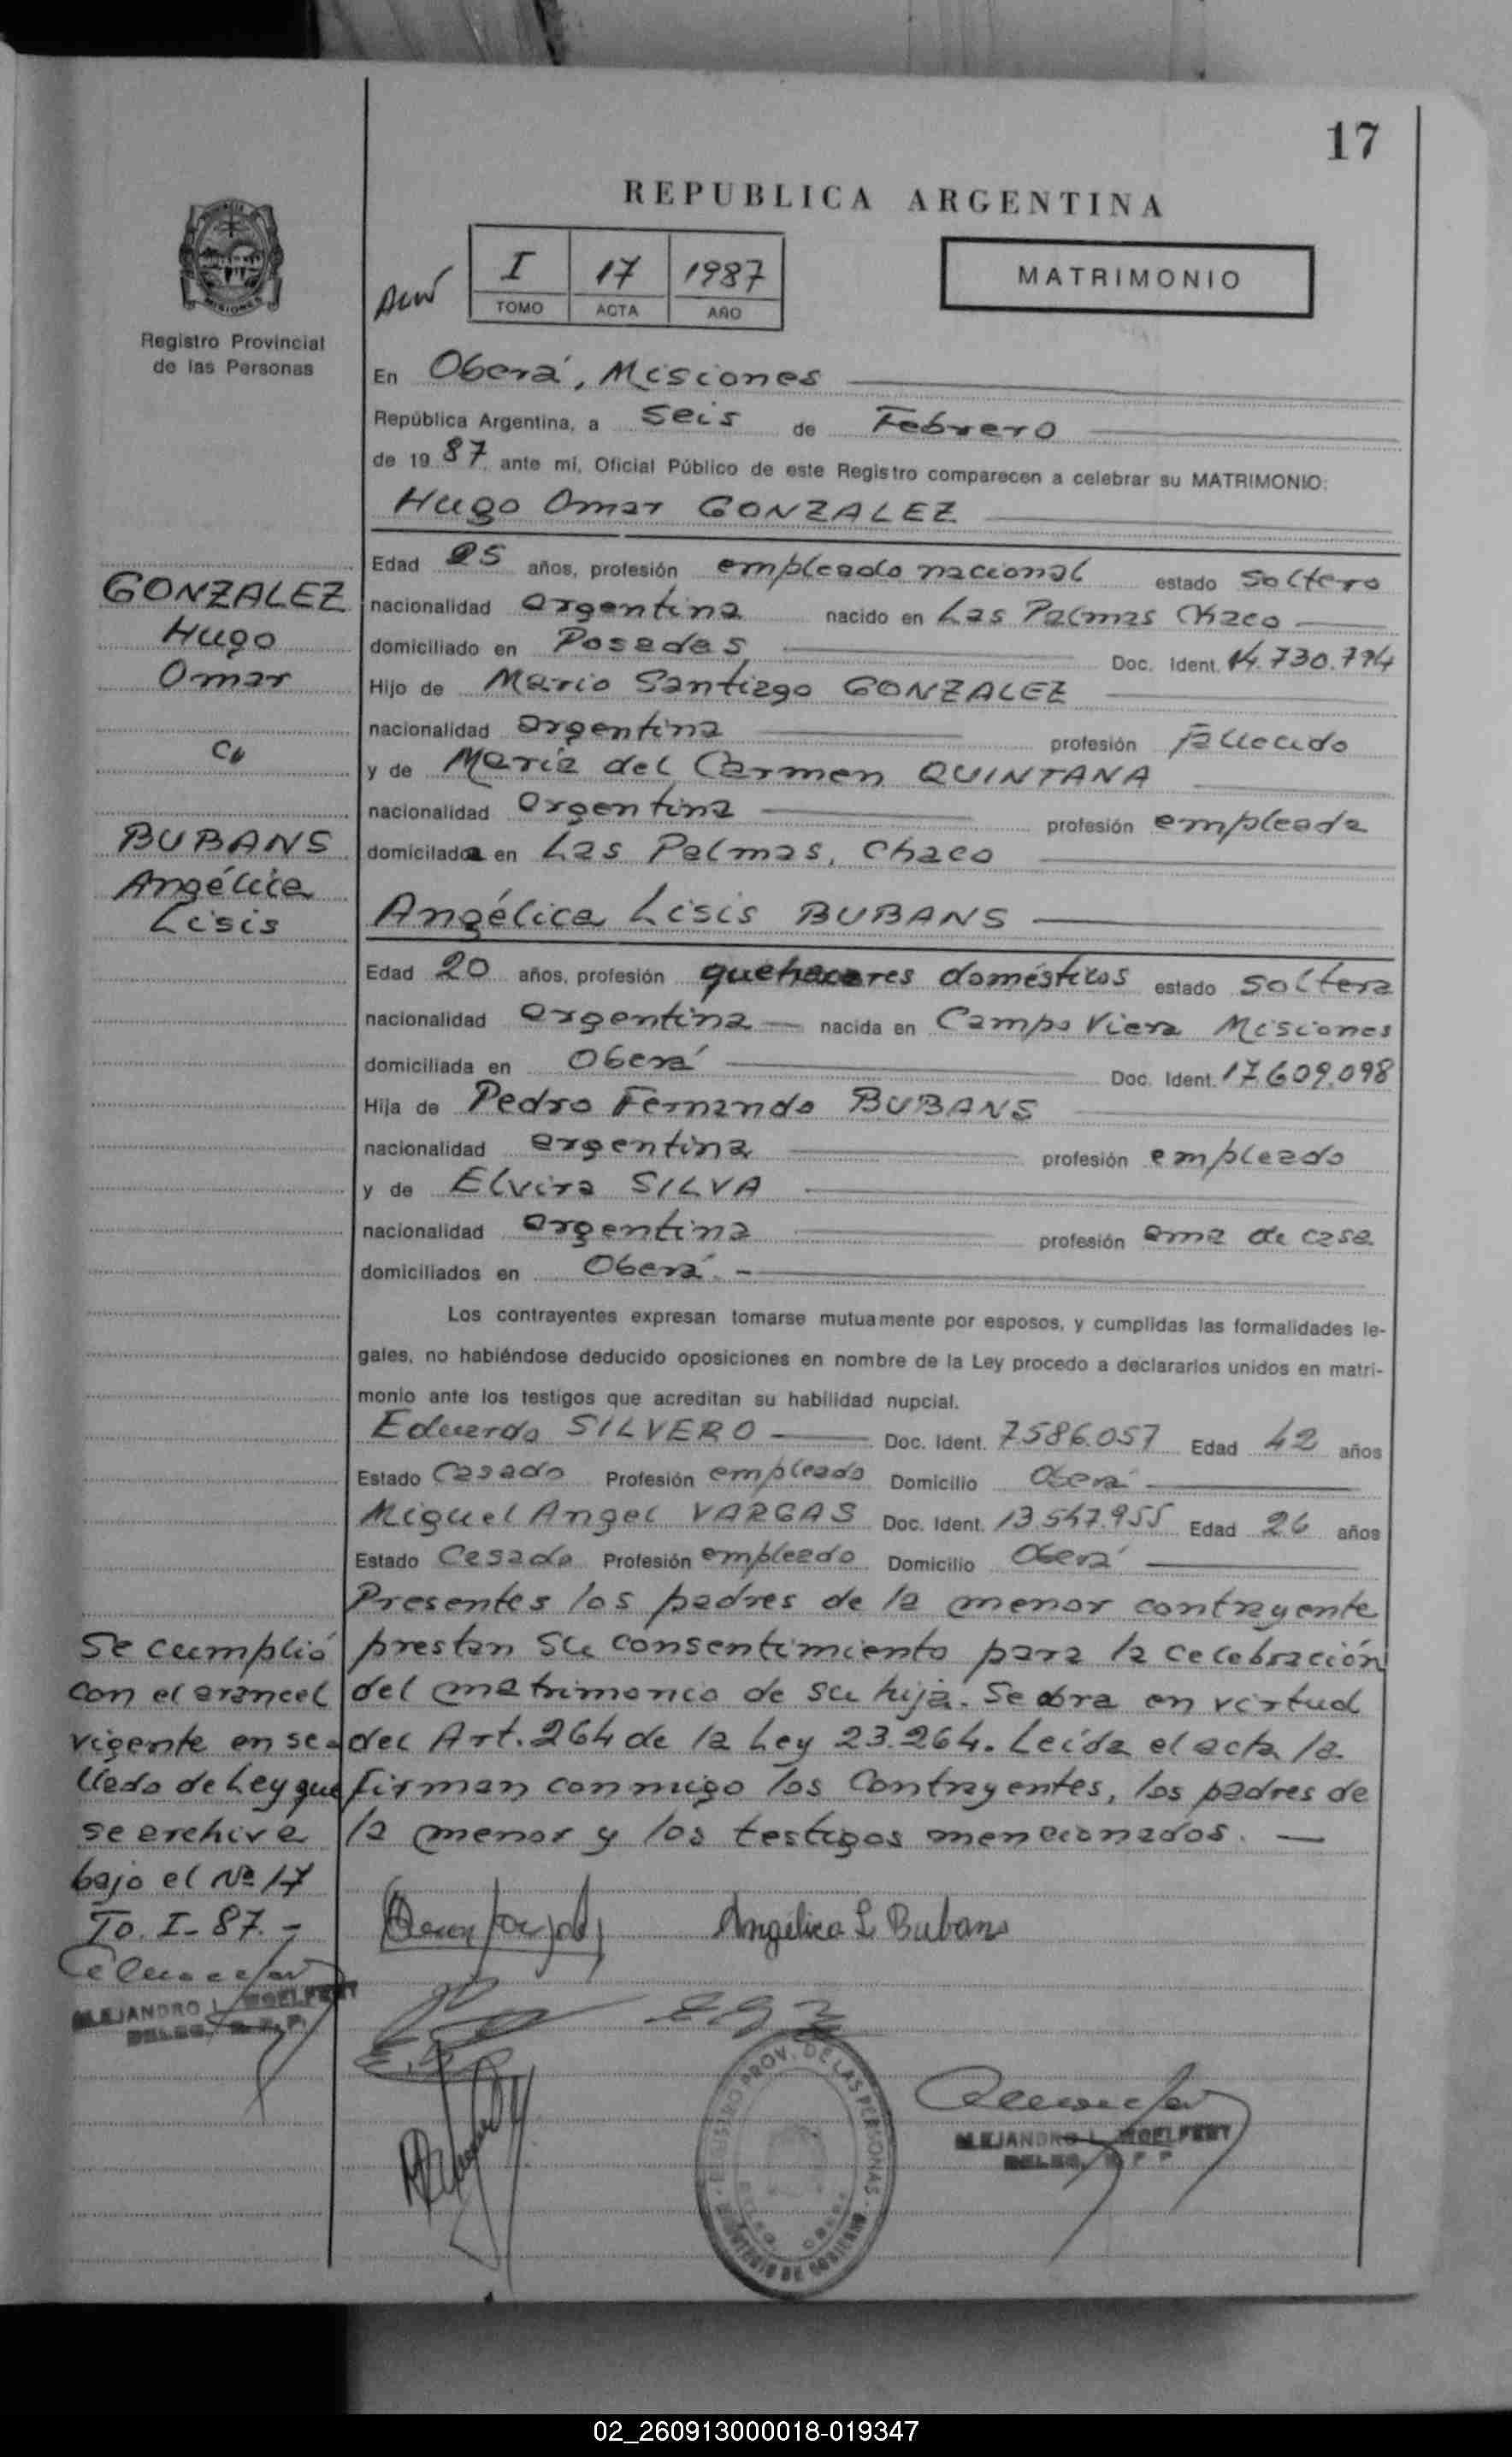 17
REPUBLICA ARGENTINA
I 17 1987
TOMO ACTA AÑO
MATRIMONIO
Registro Provincial
de las Personas
En Oberá, Misiones
República Argentina, a seis de Febrero
de 1987 ante mí, Oficial Público de este Registro comparecen a celebrar su MATRIMONIO:
Hugo Omar GONZALEZ
Edad 25 años, profesión empleado nacional estado soltero
nacionalidad argentina nacido en Las Palmas Chaco
domiciliado en Posadas Doc. Ident. 14.730.794
Hijo de Mario Santiago GONZALEZ
nacionalidad argentina profesión fallecido
y de María del Carmen QUINTANA
nacionalidad argentina profesión empleada
domiciliada en Las Palmas, Chaco
Angélica Lisis BUBANS
Edad 20 años, profesión quehaceres domésticos estado soltera
nacionalidad argentina nacida en Campo Viera Misiones
domiciliada en Oberá Doc. Ident. 17.609.098
Hija de Pedro Fernando BUBANS
nacionalidad argentina profesión empleado
y de Elvira SILVA
nacionalidad argentina profesión ama de casa
domiciliados en Oberá.-
Los contrayentes expresan tomarse mutuamente por esposos, y cumplidas las formalidades le-
gales, no habiéndose deducido oposiciones en nombre de la Ley procedo a declararlos unidos en matri-
monio ante los testigos que acreditan su habilidad nupcial.
Eduardo SILVERO Doc. Ident. 7.586.057 Edad 42 años
Estado Casado Profesión empleado Domicilio Oberá
Miguel Angel VARGAS Doc. Ident. 13.547.955 Edad 26 años
Estado Casado Profesión empleado Domicilio Oberá
Presentes los padres de la menor contrayente
prestan su consentimiento para la celebración
del matrimonio de su hija. Se obra en virtud
del Art. 264 de la Ley 23.264. Leída el acta la
firman conmigo los contrayentes, los padres de
la menor y los testigos mencionados.
GONZALEZ
Hugo
Omar
c/
BUBANS
Angélica
Lisis
Se cumplió
con el arancel
vigente en se-
llado de Ley que
se archiva
bajo el Nº 17
To. I- 87.-
ALEJANDRO L.
Angélica L Bubans
REGISTRO PROV. DE LAS PERSONAS
MINISTERIO DE GOBIERNO
ALEJANDRO L.
02_260913000018-019347